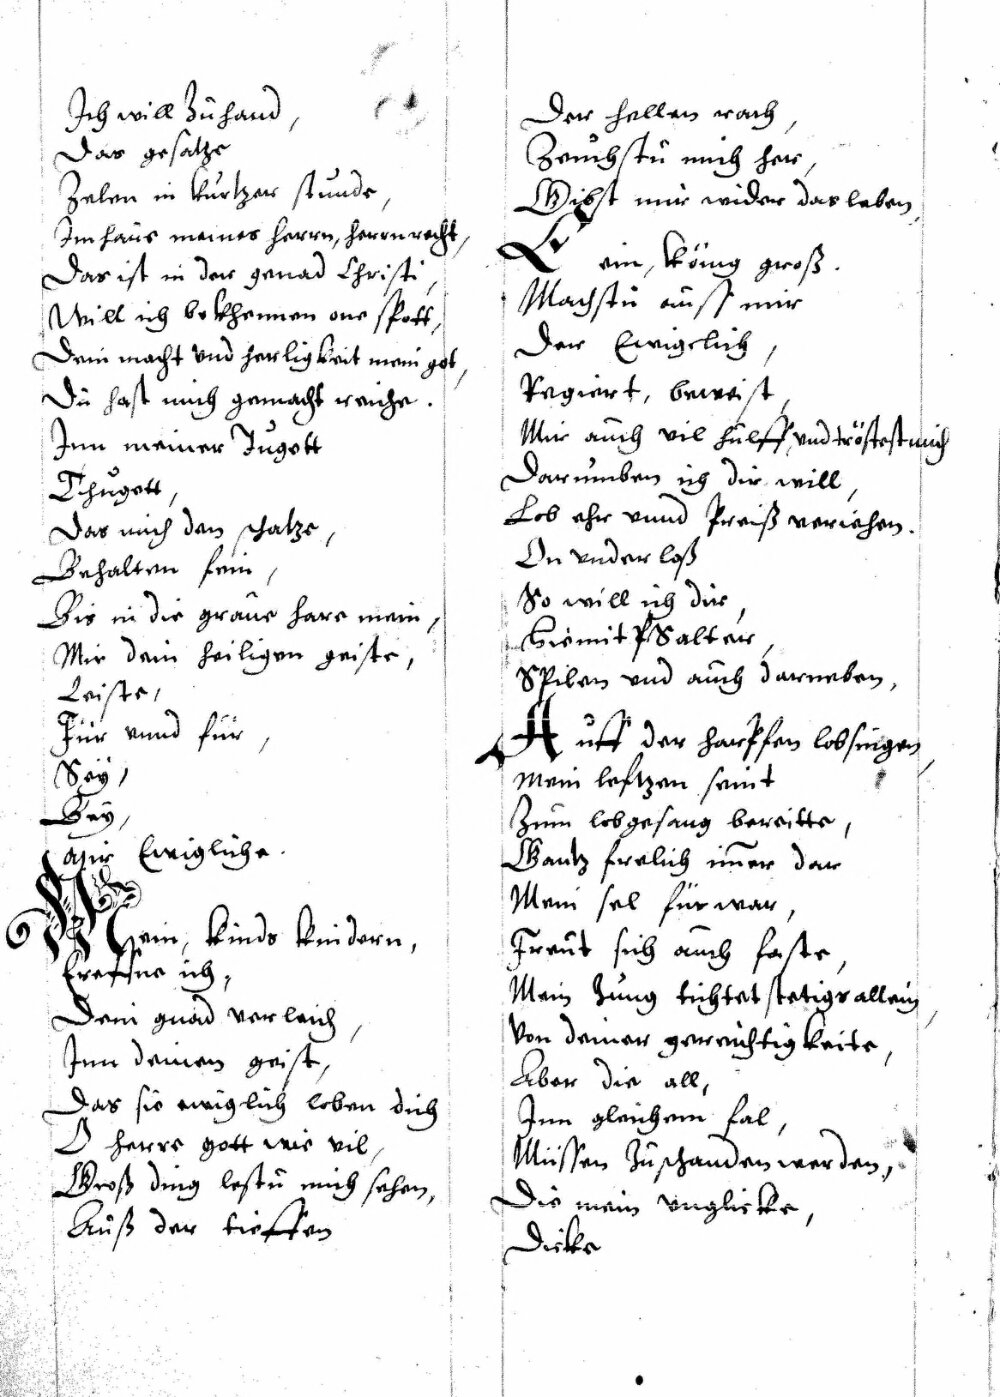 Ich will zuhand,
Das gesatze
Zelen in kurtzer stunde,
Im haus meines herrn, herrn recht,
Das ist in der genad Christi,
Will ich bekhennen one spott,
Dein macht vnd herligkeit mein got,
Du hast mich gemacht reiche.
Inn meiner Jugett
Thugett,
Das mich den schatze,
Behalten fein,
Bis in die graue hare mein,
Mir dein heiligen geiste,
Leiste,
Für vnnd für,
Sey,
Bey,
Mir Ewigliche.
Mein, kinds kindern,
Ereffne ich,
Dein gnad verleich,
Inn deinen geist,
Das sie ewiglich loben dich
O herre gott wie vil,
Groß ding lestu mich sehen,
Auß der tieffen
Der hellen rach,
Zeuchstu mich her,
Gibst mir wider das leben,
Ein, könig groß.
Machstu auss mir
Der Ewigclich,
Regiert, beweist,
Mir auch vil hülff, vnd tröstest mich
Darumben ich dir will,
Lob ehr vnnd Preiß veriehen.
On vnderlaß
So will ich dir,
Hiemit PSalter,
SPilen vnd auch darneben,
Auff der harPfen lobsingen,
Mein lefftzen seint
Zum lobgesang bereitte,
Gantz frelich imer dar
Mein sel für war,
Freut sich auch faste,
Mein zung tichtet stetigs allein,
Von deiner gerechtigkeite,
Aber die all,
Inn gleichem fal,
Müssen zuschanden werden,
Die mein vnglicke,
Dicke